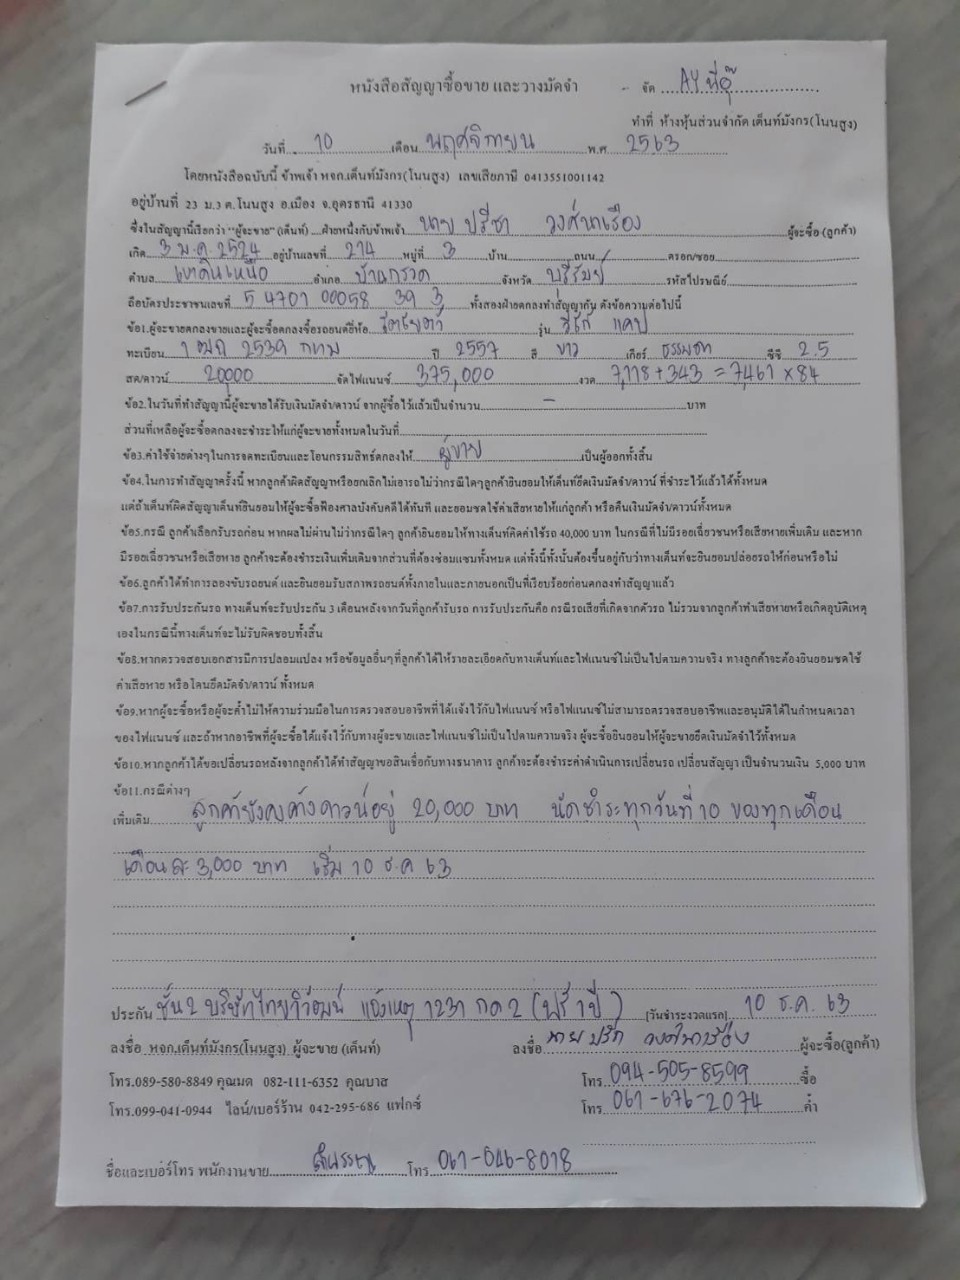 หนังสือสัญญาซื้อขาย และวางมัดจำ - จัด AY พี่อุ๊
ทำที่ ห้างหุ้นส่วนจำกัด เต็นท์มังกร(โนนสูง)
วันที่ 10 เดือน พฤศจิกายน พ.ศ 2563
โดยหนังสือฉบับนี้ ข้าพเจ้า หจก.เต็นท์มังกร(โนนสูง) เลขเสียภาษี 0413551001142
อยู่บ้านที่ 23 ม.3 ต.โนนสูง อ.เมือง จ.อุดรธานี 41330
ซึ่งในสัญญานี้เรียกว่า "ผู้จะขาย" (เต็นท์) ฝ่ายหนึ่งกับข้าพเจ้า นาย ปรีชา วงศ์นาเรือง ผู้จะซื้อ (ลูกค้า)
เกิด 3 ม.ค. 2524 อยู่บ้านเลขที่ 214 หมู่ที่ 3 บ้าน ถนน ตรอก/ซอย
ตำบล เขาดินเหนือ อำเภอ บ้านกรวด จังหวัด บุรีรัมย์ รหัสไปรษณีย์
ถือบัตรประชาชนเลขที่ 5 4701 00058 39 3 ทั้งสองฝ่ายตกลงทำสัญญากัน ดังข้อความต่อไปนี้
ข้อ1.ผู้จะขายตกลงขายและผู้จะซื้อตกลงซื้อรถยนต์ยี่ห้อ โตโยต้า รุ่น วีโก้ แคป
ทะเบียน 1 ฒฎ 2539 กทม ปี 2557 สี ขาว เกียร์ ธรรมดา ซีซี 2.5
สด/ดาวน์ 20,000 จัดไฟแนนซ์ 375,000 งวด 7,118 + 343 = 7,461 x 84
ข้อ2.ในวันที่ทำสัญญานี้ผู้จะขายได้รับเงินมัดจำ/ดาวน์ จากผู้ซื้อไว้แล้วเป็นจำนวน - บาท
ส่วนที่เหลือผู้จะซื้อตกลงจะชำระให้แก่ผู้จะขายทั้งหมดในวันที่
ข้อ3.ค่าใช้จ่ายต่างๆในการจดทะเบียนและโอนกรรมสิทธ์ตกลงให้ ผู้ขาย เป็นผู้ออกทั้งสิ้น
ข้อ4.ในการทำสัญญาครั้งนี้ หากลูกค้าผิดสัญญาหรือยกเลิกไม่เอารถไม่ว่ากรณีใดๆลูกค้ายินยอมให้เต็นท์ยึดเงินมัดจำ/ดาวน์ ที่ชำระไว้แล้วได้ทั้งหมด
แต่ถ้าเต็นท์ผิดสัญญาเต็นท์ยินยอมให้ผู้จะซื้อฟ้องศาลบังคับคดีได้ทันที และยอมชดใช้ค่าเสียหายให้แก่ลูกค้า หรือคืนเงินมัดจำ/ดาวน์ทั้งหมด
ข้อ5.กรณี ลูกค้าเลือกรับรถก่อน หากผลไม่ผ่านไม่ว่ากรณีใดๆ ลูกค้ายินยอมให้ทางเต็นท์คิดค่าใช้รถ 40,000 บาท ในกรณีที่ไม่มีรอยเฉี่ยวชนหรือเสียหายเพิ่มเติม และหาก
มีรอยเฉี่ยวชนหรือเสียหาย ลูกค้าจะต้องชำระเงินเพิ่มเติมจากส่วนที่ต้องซ่อมแซมทั้งหมด แต่ทั้งนี้ทั้งนั้นต้องขึ้นอยู่กับว่าทางเต็นท์จะยินยอมปล่อยรถให้ก่อนหรือไม่
ข้อ6.ลูกค้าได้ทำการลองขับรถยนต์ และยินยอมรับสภาพรถยนต์ทั้งภายในและภายนอกเป็นที่เรียบร้อยก่อนตกลงทำสัญญาแล้ว
ข้อ7.การรับประกันรถ ทางเต็นท์จะรับประกัน 3 เดือนหลังจากวันที่ลูกค้ารับรถ การรับประกันคือ กรณีรถเสียที่เกิดจากตัวรถ ไม่รวมจากลูกค้าทำเสียหายหรือเกิดอุบัติเหตุ
เองในกรณีนี้ทางเต็นท์จะไม่รับผิดชอบทั้งสิ้น
ข้อ8.หากตรวจสอบเอกสารมีการปลอมแปลง หรือข้อมูลอื่นๆที่ลูกค้าได้ให้รายละเอียดกับทางเต็นท์และไฟแนนซ์ไม่เป็นไปตามความจริง ทางลูกค้าจะต้องยินยอมชดใช้
ค่าเสียหาย หรือโดนยึดมัดจำ/ดาวน์ ทั้งหมด
ข้อ9.หากผู้จะซื้อหรือผู้จะค้ำไม่ให้ความร่วมมือในการตรวจสอบอาชีพที่ได้แจ้งไว้กับไฟแนนซ์ หรือไฟแนนซ์ไม่สามารถตรวจสอบอาชีพและอนุมัติได้ในกำหนดเวลา
ของไฟแนนซ์ และถ้าหากอาชีพที่ผู้จะซื้อได้แจ้งไว้กับทางผู้จะขายและไฟแนนซ์ไม่เป็นไปตามความจริง ผู้จะซื้อยินยอมให้ผู้จะขายยึดเงินมัดจำไว้ทั้งหมด
ข้อ10.หากลูกค้าได้ขอเปลี่ยนรถหลังจากลูกค้าได้ทำสัญญาขอสินเชื่อกับทางธนาคาร ลูกค้าจะต้องชำระค่าดำเนินการเปลี่ยนรถ เปลี่ยนสัญญา เป็นจำนวนเงิน 5,000 บาท
ข้อ11.กรณีต่างๆ
เพิ่มเติม ลูกค้ายังคงค้างดาวน์อยู่ 20,000 บาท นัดชำระทุกวันที่ 10 ของทุกเดือน
เดือนละ 3,000 บาท เริ่ม 10 ธ.ค 63
ประกัน ชั้น 2 บริษัทไทยวิวัฒน์ แจ้งเหตุ 1231 กด 2 (ฟรี 1 ปี) [วันชำระงวดแรก] 10 ธ.ค. 63
ลงชื่อ หจก.เต็นท์มังกร(โนนสูง) ผู้จะขาย (เต็นท์) ลงชื่อ นาย ปรีชา วงศ์นาเรือง ผู้จะซื้อ(ลูกค้า)
โทร.089-580-8849 คุณมด 082-111-6352 คุณบาส โทร 094-505-8599 ซื้อ
โทร.099-041-0944 ไลน์/เบอร์ร้าน 042-295-686 แฟกซ์ โทร 061-676-2074 ค้ำ
ชื่อและเบอร์โทร พนักงานขาย โทร 061-046-8018